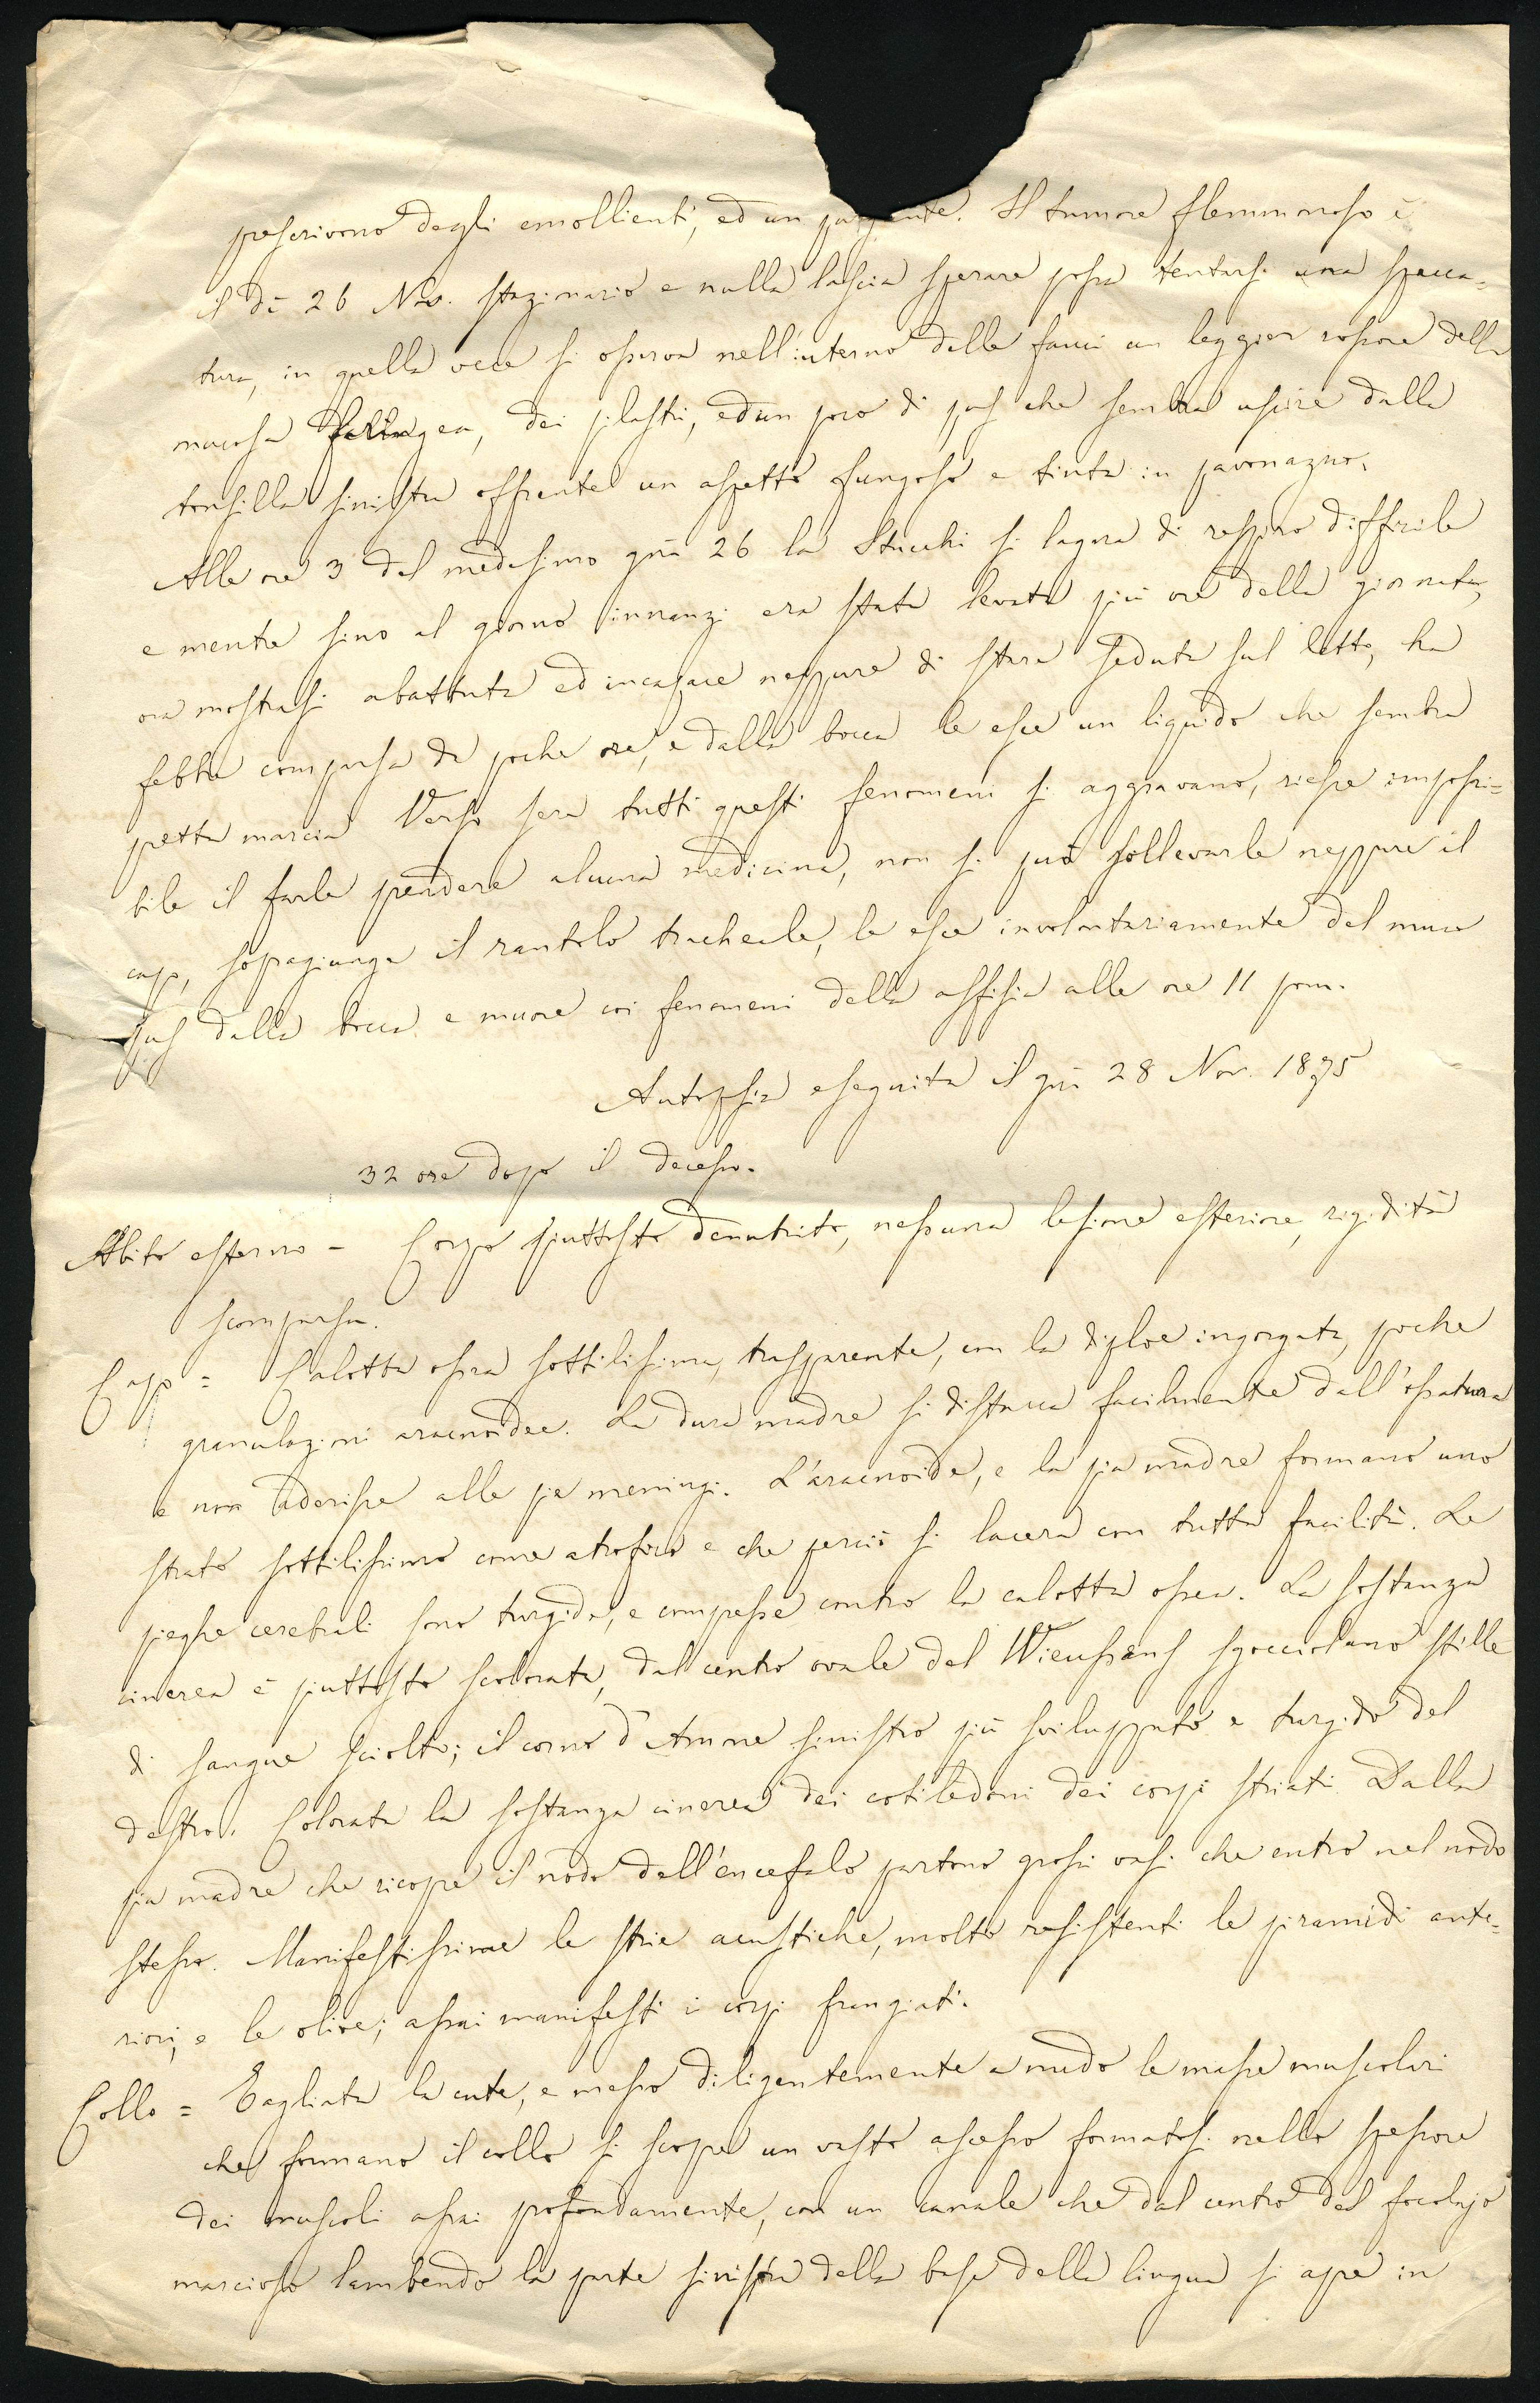 prescrivono degli emollienti, ed un purgante. Il tumore flemmnoso è
il dì 26 Nov. stazionario e nulla lascia sperare possa tentarsi una spacca=
tura, in quella vece si osserva nell'interno delle fauci un leggier rossore della
mucosa faringea, dei pilastri, ed un poco di pus che sembra uscire dalla
tonsilla sinistra offrente un aspetto fungoso e tinta in pavonazzo.
Alle ore 3 del medesimo gni 26 la Stucchi si lagna di respiro difficile
e mentre sino al giorno innanzi era stata levata più ore della giornata,
ora mostrasi abattuta ed incapace neppure di stare seduta sul letto, ha
febbre comparsa da poche ore, e dalla bocca le esce un liquido che sembra
pretta marcia. Verso sera tutti questi fenomeni si aggravano, riesce impossi=
bile il farle prendere alcuna medicina, non si può sollevarle neppure il
capo, sopragiunge il rantolo tracheale, le esce involontariamente del muco
pus dalla bocca e muore coi fenomeni della asfisia alle ore 11 pom.
Autopsia eseguita il gni 28 Nov. 1875
32 ore dopo il decesso.
Abito esterno - Corpo piuttosto denutrito, nessuna lesione esteriore, rigidità
scomparsa.
Capo = Calotta ossea sottilissima, trasparente, con la diploe ingorgata, poche
granulazioni aracnoidee. La dura madre si distacca facilmente dall'ossatura
e non aderisce alle pie meningi. L'aracnoide, e la pia madre formano uno
strato sottilissimo come atrofico e che perciò si lacera con tutta facilità. Le
pieghe cerebrali sono turgide, e compresse contro la calotta ossea. La sostanza
cinerea è piuttosto scolorata, dal centro ovale del Wieussens sgocciolano stille
di sangue sciolto; il corno d'Amone sinistro più sviluppato e turgido del
destro. Colorata la sostanza cinerea dei cotiledoni dei corpi striati. Dalla
pia madre che ricopre il nodo dell'encefalo partono grossi vasi che entro nel nodo
stesso. Manifestissime le strie acustiche, molto resistenti le piramidi ante=
riori, e le olive; assai manifesti i corpi frangiati.
Collo = Tagliata la cute, e messo diligentemente a nudo le masse muscolari
che formano il collo si scopre un vasto ascesso formatosi nello spessore
dei muscoli assai profondamente, con un canale che dal centro del focolajo
marcioso lambendo la parte sinistra della base della lingua si apre in